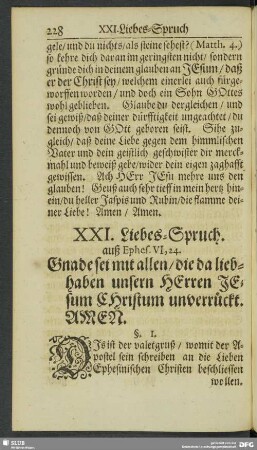 228 XXI. Liebes-Spruch
gele/ und du nichts/ als steine sehest? (Matth. 4.)
so kehre dich daran im geringsten nicht/ sondern
gründe dich in deinem glauben an JEsum/ daß
er der Christ sey/ welchem einerlei auch fürge-
worffen worden/ und doch ein Sohn GOttes
wohl geblieben. Glaube du dergleichen/ und
sei gewiß/ daß deiner dürfftigkeit ungeachtet/ du
dennoch von GOtt geboren seist. Sihe zu-
gleich/ daß deine Liebe gegen dem himmlischen
Vater und dein geistlich geschwister dir merck-
mahl und beweiß gebe/ wider dein eigen zaghafft
gewissen. Ach HErr JEsu mehre uns den
glauben! Geuß auch sehr tieff in mein hertz hin-
ein/ du heller Jaspis und Rubin/ die flamme dei-
ner Liebe! Amen/ Amen.
XXI. Liebes-Spruch.
auß Ephes. VI, 24.
Gnade sei mit allen/ die da lieb-
haben unsern HErren JE-
sum CHristum unverrückt.
AMEN.
§. 1.
Dis ist der valetgruß/ womit der A-
postel sein schreiben an die Lieben
Ephesinischen Christen beschliessen
wollen.
SLUB
DFG